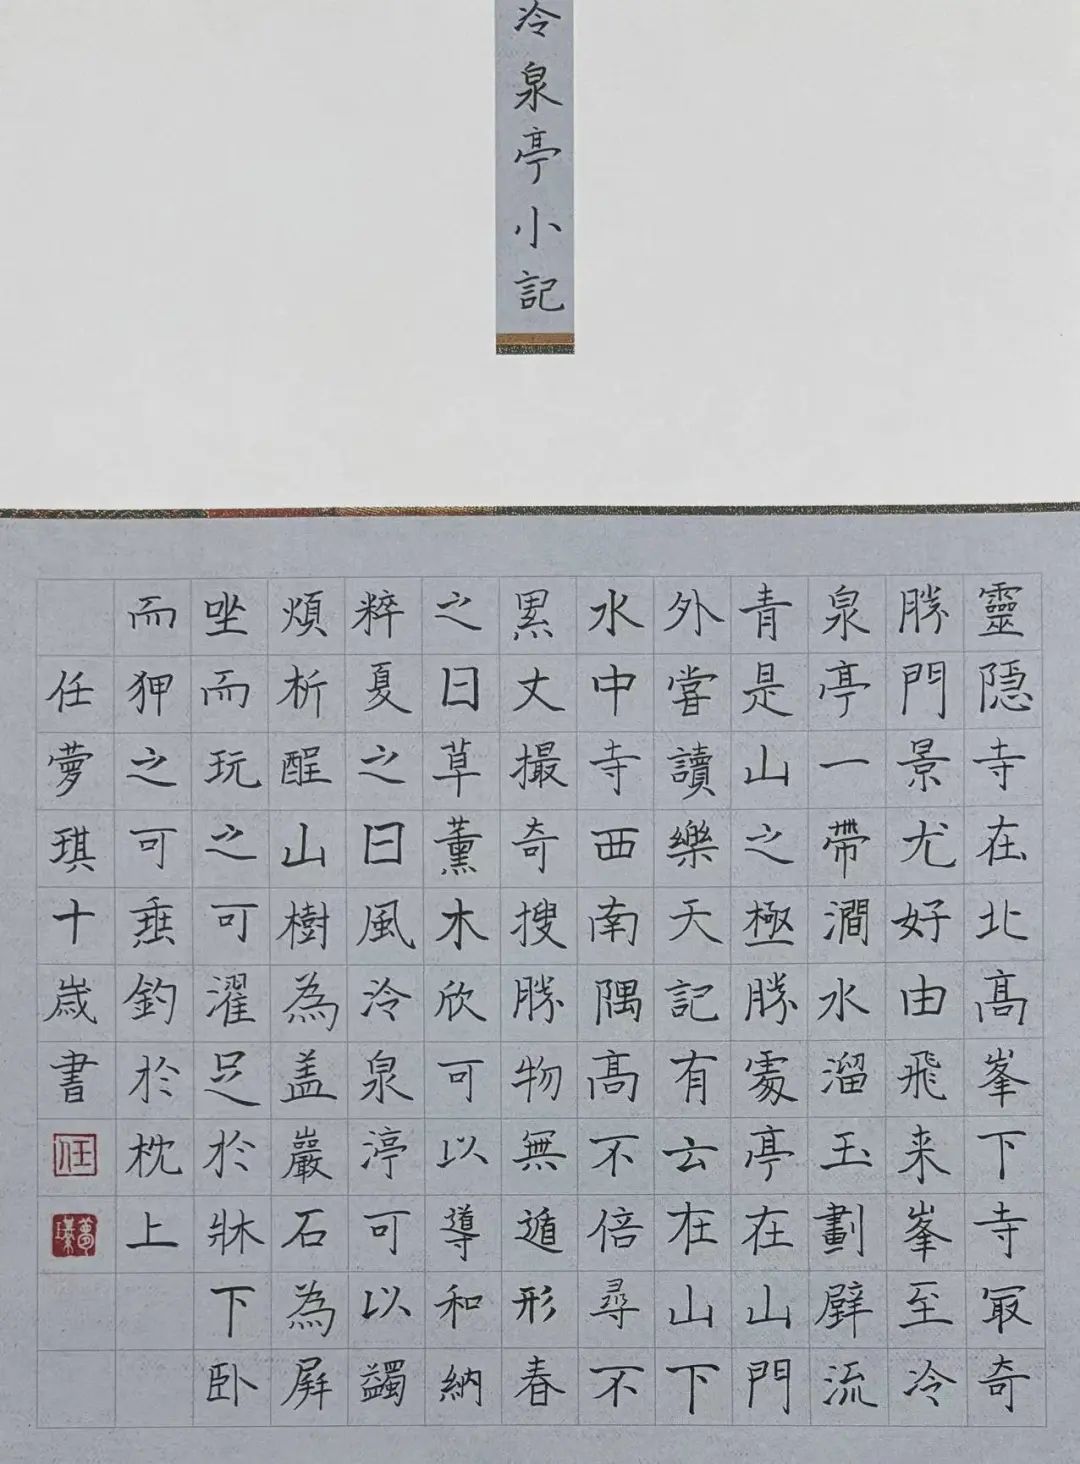 冷泉亭小記
靈隱寺在北高峯下寺冣奇
勝門景尤好由飛来峯至冷
泉亭一帶澗水溜玉劃壁流
青是山之極勝處亭在山門
外嘗讀樂天記有云在山下
水中寺西南隅高不倍尋不
累丈撮奇搜勝物無遁形春
之日草薰木欣可以導和納
粹夏之日風泠泉渟可以蠲
煩析酲山樹為盖巖石為屏
坐而玩之可濯足於牀下卧
而狎之可垂釣於枕上
任夢琪十歲書
任
夢琪